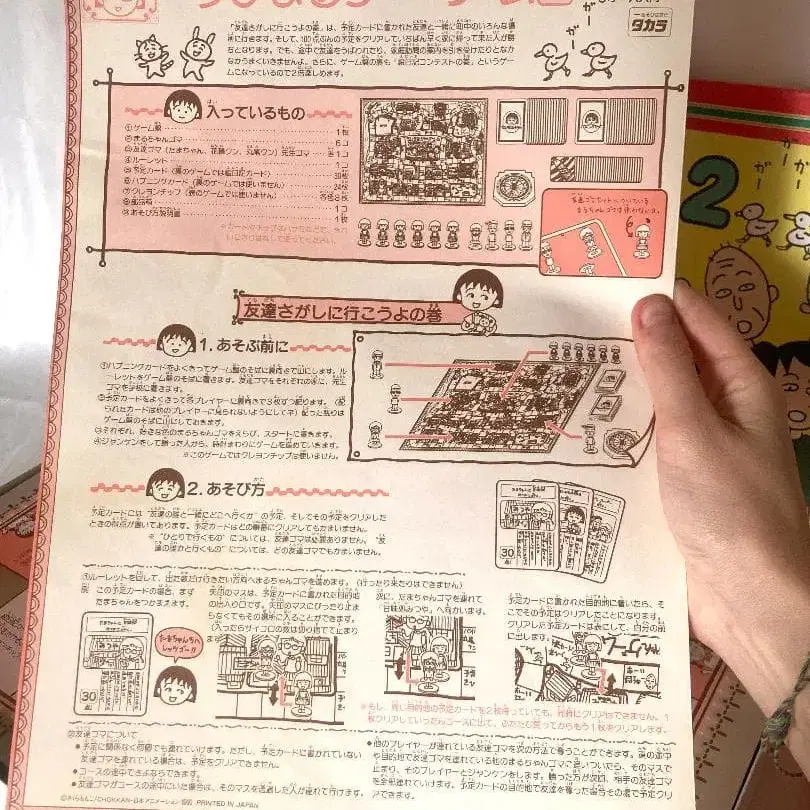 タカラ
「友達さがしに行こうよの巻」は、予定カードに書かれた友達と一緒に町中のいろんな場
所に行きます。そして、100点ぶんの予定をクリアしていちばん早く家に帰って来た人が勝
ちとなります。でも、途中で友達をうばわれたり、家庭訪問の案内を引き受けたりとなか
なかうまくいきませんよ。さらに、ゲーム盤の裏も「絵日記コンテストの巻」というゲー
ムになっているので2倍楽しめます。
ガー
ガー
入っているもの
①ゲーム盤 1枚
②まるちゃんゴマ 6コ
③友達ゴマ(たまちゃん、花輪クン、丸尾クン)先生ゴマ 各1コ
④ルーレット 1コ
⑤予定カード(裏のゲームでは絵日記カード) 30枚
⑥ハプニングカード(裏のゲームでは使いません) 24枚
⑦クレヨンチップ(表のゲームでは使いません)
⑨あそび方説明書 1枚
友達さがしに行こうよの巻
1. あそぶ前に
①ハプニングカードをよくきってゲーム盤のそばに裏向きで山にします。ル
ーレットをゲーム盤のそばに置きます。友達ゴマをそれぞれの家に、先生
ゴマを学校に置きます。
②予定カードをよくきって各プレイヤーに裏向きで3枚ずつ配ります。(配
られたカードは他のプレイヤーに見られないようにしてネ)配った残りは
ゲーム盤のそばに山にしておきます。
③それぞれ、好きな色のまるちゃんゴマをえらび、スタートに置きます。
④ジャンケンをして勝った人から、時計まわりにゲームを進めていきます。
※このゲームではクレヨンチップは使いません。
2. あそび方
予定カードには"友達の誰と一緒にどこへ行くか"の予定、そしてその予定をクリアした
ときの得点が書いてあります。予定カードはどの順番にクリアしてもかまいません。
※"ひとりで行くもの"については、友達ゴマは必要ありません。"友
達の誰かと行くもの"については、どの友達ゴマでもかまいません。
30
①ルーレットを回して、出た数だけ行きたい方向へまるちゃんゴマを進めます。(行ったり来たりはできません)
例 この予定カードの場合、まず
たまちゃんをつかまえます。
30
たまちゃんちへ
レッツゴー!!
矢印のマスは、予定カードに書かれた目的地
の出入り口です。矢印のマスにぴったり止ま
らなくてもその場所に入ることができます。
(入ったらサイコロの数は切り捨てで止まり
ます)
次に、たまちゃんゴマを連れて
"甘味処みつや"へ向かいます。
予定カードに書かれた目的地に着いたら、そ
こでその予定はクリアしたことになります。
クリアした予定カードは表にして、自分の前
に出します。
※もし、同じ目的地の予定カードを2枚持っていても、同時にクリアはできません。1
枚クリアしていったんコースに出て、ふたたび戻ってからもう1枚をクリアします。
②友達ゴマについて
●予定に関係なく何個でも連れていけます。ただし、予定カードに書かれていない
友達を連れている場合は、予定をクリアできません。
●コースの途中でさよならできます。
●友達ゴマがコースの途中にいた場合は、そのマスを通過した人が連れて行けます。
●他のプレイヤーが連れている友達ゴマを次の方法で奪うことができます。道の途中
や目的地で友達ゴマを連れている他のまるちゃんゴマに追いついたら、そのマスで
止まり、そのプレイヤーとジャンケンをします。勝った方が次回、相手の友達ゴマ
を全部連れて行けます。予定カードの目的地で友達を奪った場合その場で予定クリ
アできます。
©さくらももこ/CHOKKAN・日本アニメーション 1990 PRINTED IN JAPAN
2
ガー
ガー